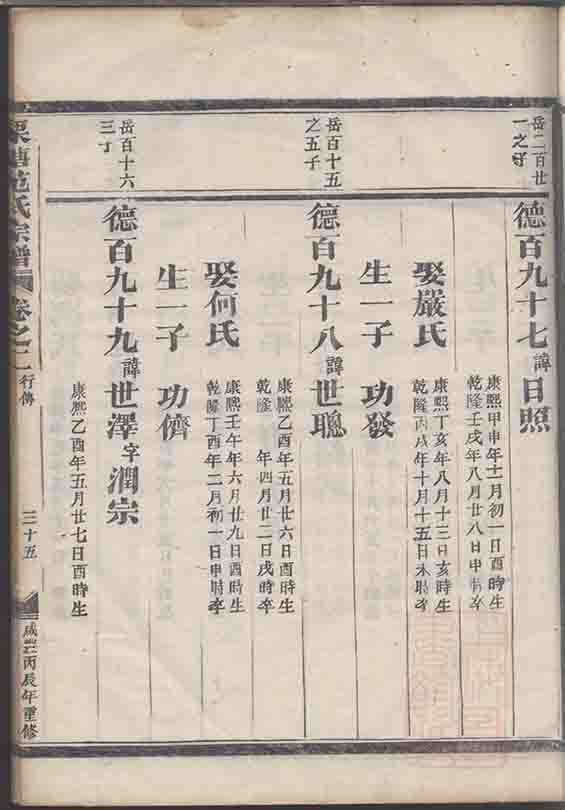 岳二百廿
一之子
德百九十七諱日照
康熙甲申年十一月初一日酉時生
乾隆壬戌年八月廿八日申時卒
娶嚴氏
康熙丁亥年八月十三日亥時生
乾隆丙戌年十月十五日未時卒
生一子 功發
岳百十五
之五子
德百九十八諱世聰
康熙乙酉年五月廿六日酉時生
乾隆 年四月廿二日戌時卒
娶何氏
康熙壬午年六月廿九日酉時生
乾隆丁酉年二月初一日申時卒
生一子 功儕
岳百十六
三子
德百九十九諱世澤字潤宗
康熙乙酉年五月廿七日酉時生
范氏宗譜 卷之二 行傳 三十五 咸豐丙辰年重修